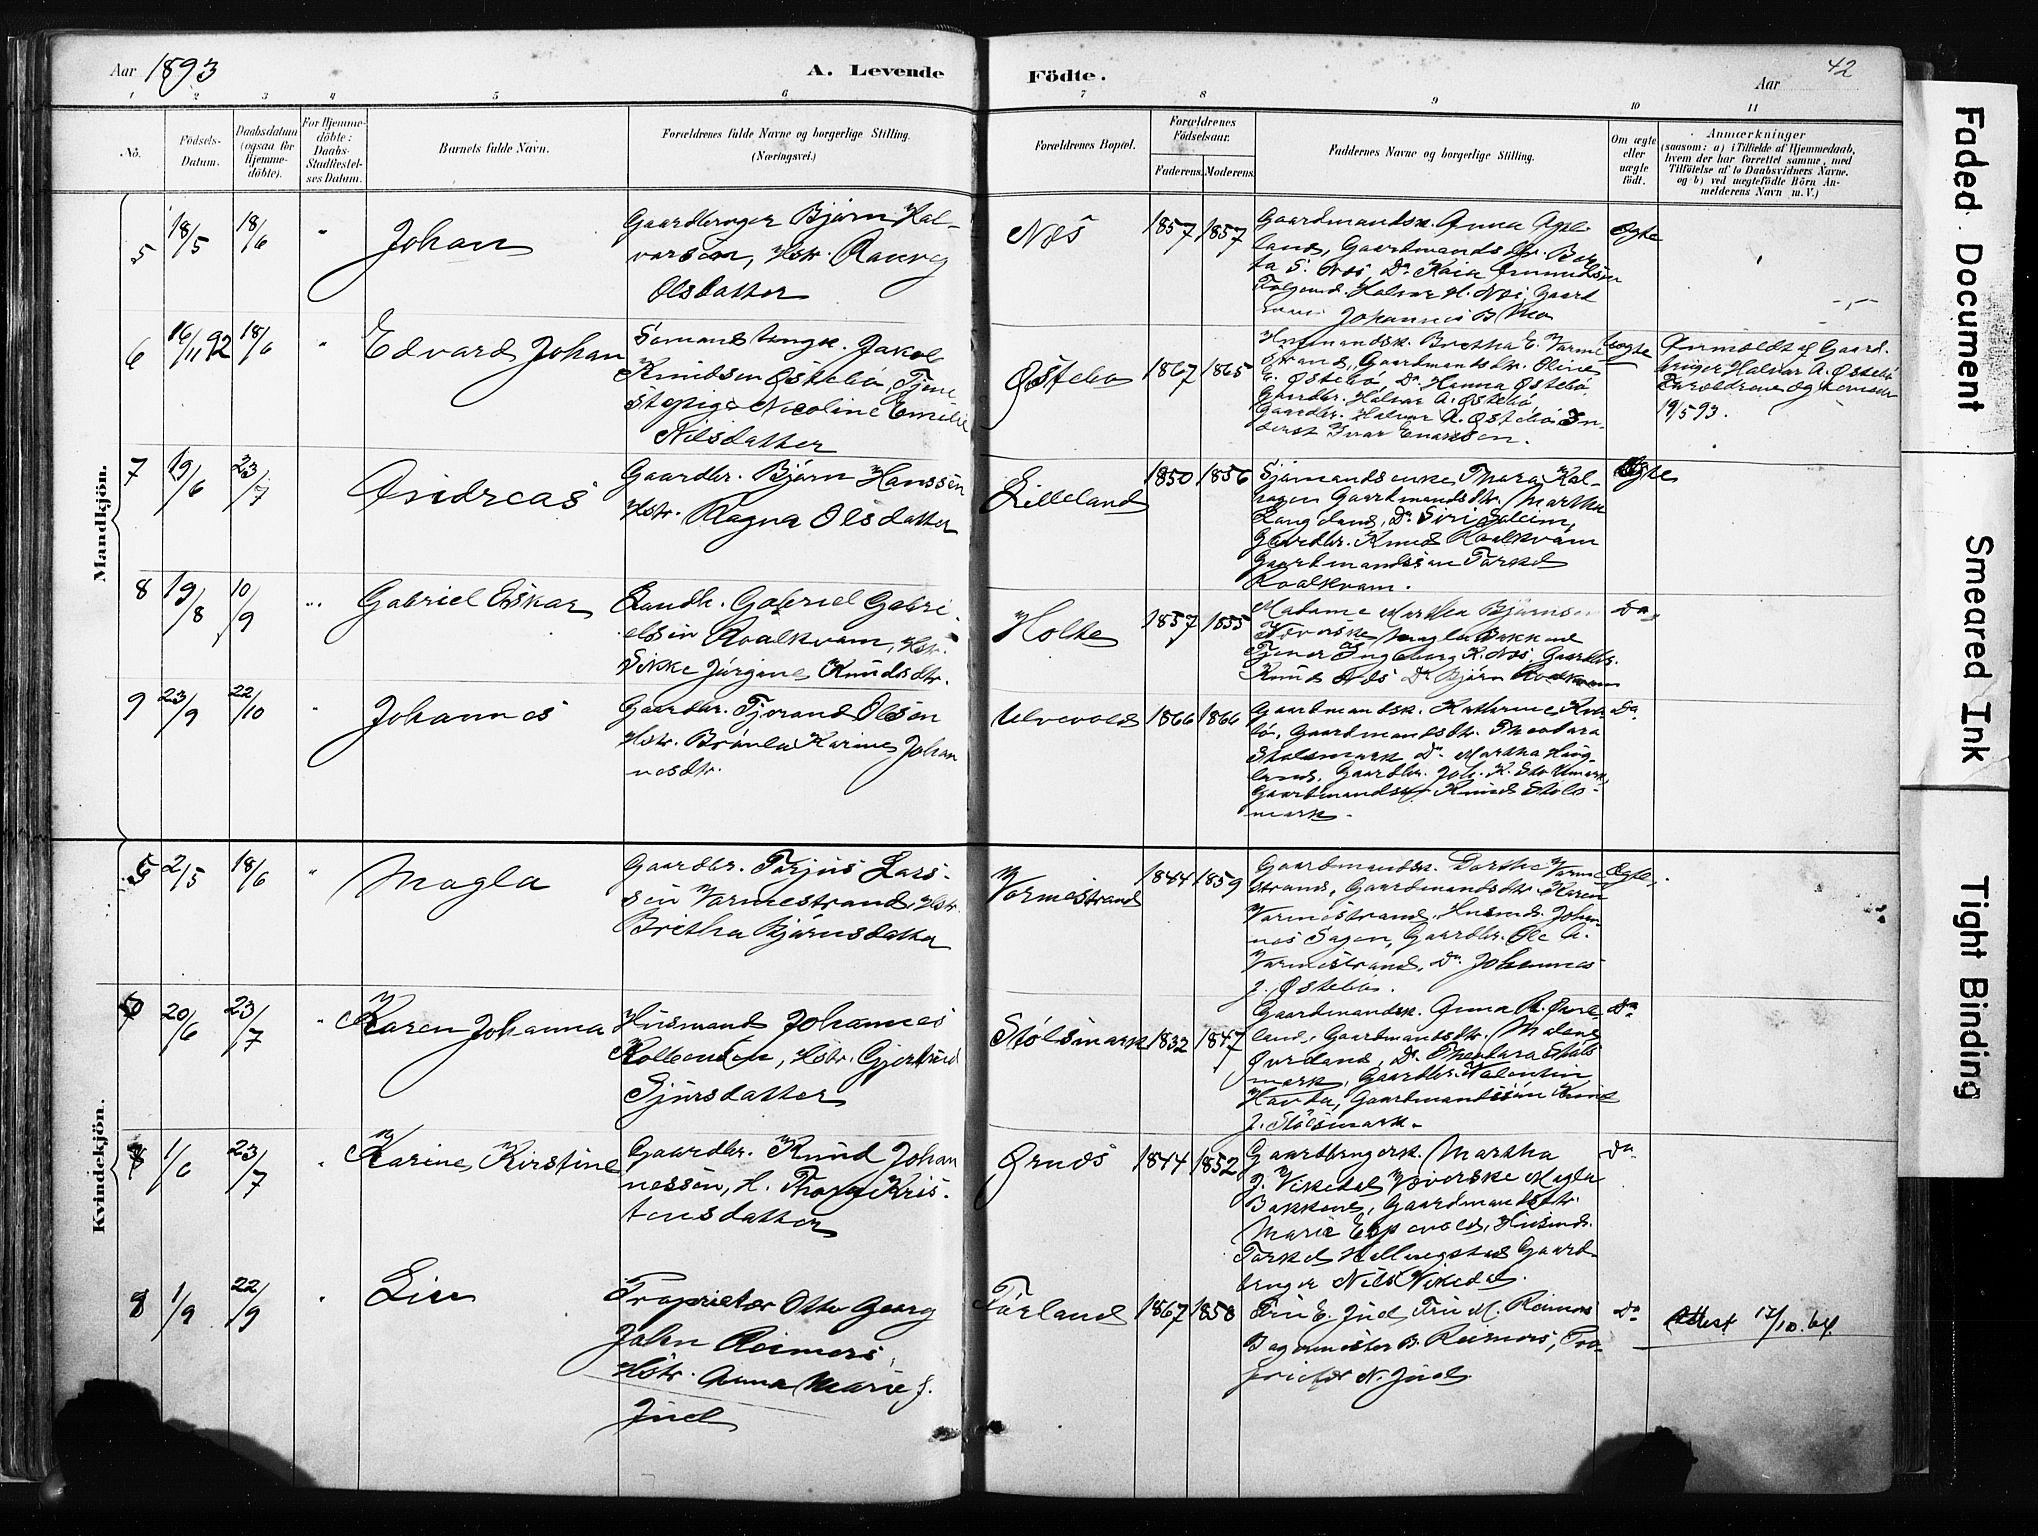 Aar 1893
A. Levende
Födte.
Aar
42
1 2 3 4 5 6 7 8 9 10 11
No.
Födsels-Datum.
Daabsdatum (ogsaa for Hjemme-döbte).
For Hjemme-döbte: Daabs-Stadfæstel-ses Datum.
Barnets fulde Navn.
Forældrenes fulde Navne og borgerlige Stilling.
(Næringsvei.)
Forældrenes Bopæl.
Forældrenes Födselsaar.
Faderens. Moderens.
Faddernes Navne og borgerlige Stilling.
Om ægte eller uægte födt.
Anmærkninger
(saasom: a) i Tilfælde af Hjemmedaab,
hvem der har forrettet samme, med
Tilföielse af to Daabsvidners Navne.
og b) ved uægtefödte Börn An-
melderens Navn m. V.)
Mandkjön.
5 18/5 18/6 " Johan
Gaardbruger Bjørn Hal-
vorsen, Hstr. Ranveg
Olsdatter
Næs 1857 1857
Gaardmandsk. Anna
land, Gaardmandsdtr. Ber
ta S. Næs, Do Kaia
Halvor H. Næs, Gaard
Johannes B Mo
Ægte
6 16/11 92 18/6 " Edvard Johan
Sømand Ungk. Jakob
Knudsen Østebø, Tjene
stepige Nicoline Emilie
Nilsdatter
Østebø 1867 1865
Husmandsk. Bretha E. Varme
strand, Gaardmandsdtr. Oline
E. Østebø, Do Hanna Østebø
Gaardbr. Halvor A. Østebø
Gaardbr. Halvor A. Østebø In-
derst Ivar Enarssen.
Uægte
Anmeldt af Gaard-
bruger Halvor A. Østebø
19/5 93.
7 19/6 23/7 Andreas
Gaardbr. Bjørn Hanssen
Hstr. Ragna Olsdatter
Lilleland 1850 1856
Sjømandsenke Thora Hal-
Gaardmandsdtr. Martha
Langeland, Do Siri
Gaardbr. Knud Roalkvam
Gaardmandssøn Torkel
Roalkvam.
Ægte
8 19/8 10/9 " Gabriel Oskar
Landh. Gabriel Gabri
elsen Roalkvam, Hstr.
Sikke Jørgine Knudsdtr.
Holte 1857 1855
Madame Martha Bjørnsen
Væverske Magla Bakkene
Tjener Ingeborg K. Næs Gaardbr.
Knud Næs Do Bjørn Roalkvam
Do
9 23/9 22/10 " Johannes
Gaardbr. Tjerand Olsen
Hstr. Karine Johan
nesdtr.
Ulvevold 1866 1866
Gaardmandsk. Katharine
Gaardmandsdtr. Theodora
Stølsmark Do Martha Haug-
land, Gaardbr. Joh. K. Stølsmark,
Gaardmands Knud Støls-
mark.
Do
Kvindekjön.
5 2/5 18/6 " Magla
Gaardbr. Torjus Lars-
sen Varmestrand, Hstr.
Britha Bjørnsdatter
Varmestrand 1844 1859
Gaardmandsk. Dorthe Varme
strand, Gaardmandsdtr. Karen
Varmestrand, Husmd. Johan-
nes Sagen, Gaardbr. Ole A.
Varmestrand, Do Johannes
J. Østebø.
Ægte,
20/6 23/7 " Karen Johanna
Husmand Johannes
Hstr. Gjertrud
Sjursdatter
Stølsmark 1832 1847
Gaardmandsk. Anna R. Øvre-
land, Gaardmandsdtr. Malene
Øvreland, Do Theodora Støls
mark, Gaardbr. Valentin
Havda, Gaardmandssøn Knut
J. Stølsmark.
Do
1/6 23/7 " Karine Kirstine
Gaardbr. Knud Johan
nessen, H. Thora Kris-
tensdatter
Ørnæs 1844 1852
Gaardbrugersk. Martha
J. Vikedal Væverske Magla
Bakkene, Gaardmandsdtr.
Marie Espevold, Husmd.
Torkel Hellingstad Gaard-
bruger Nils Vikedal.
Do
8 1/9 22/9 " Lise
Proprietær Otto Georg
John Reimers,
Hstr. Anna Marie J.
Juel
Førland 1867 1858
Fru E. Juel, Fru M. Reimers
Bagermester B. Reimers, Pro-
prietær N. Juel.
Do
Attest 12/10.64.
Faded Document
Smeared Ink
Tight Binding